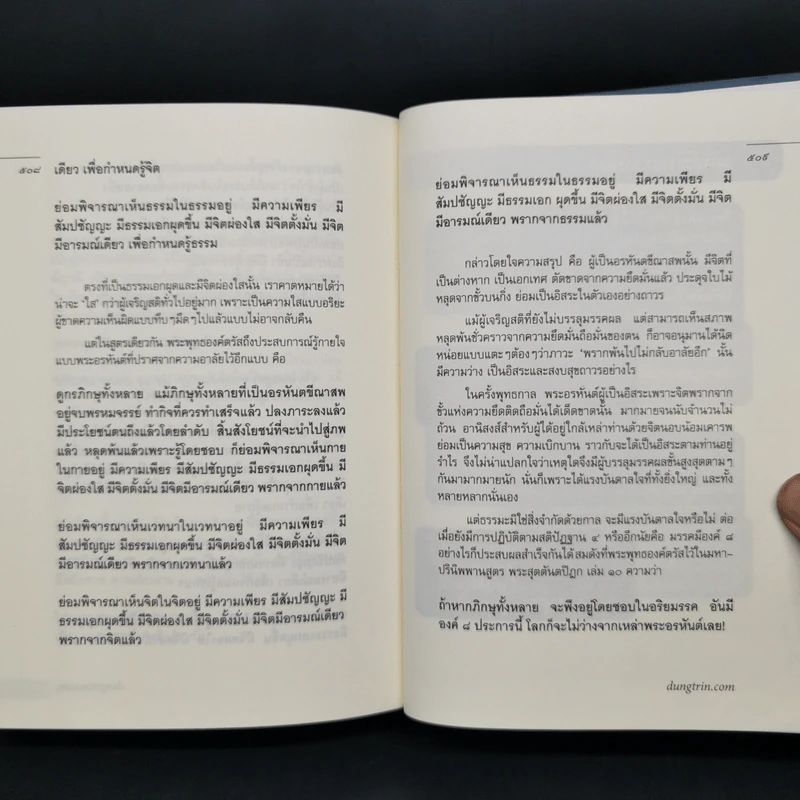 ๕๐๘
เดียว เพื่อกำหนดรู้จิต
ย่อมพิจารณาเห็นธรรมในธรรมอยู่ มีความเพียร มี
สัมปชัญญะ มีธรรมเอกผุดขึ้น มีจิตผ่องใส มีจิตตั้งมั่น มีจิต
มีอารมณ์เดียว เพื่อกำหนดรู้ธรรม
ตรงที่เป็นธรรมเอกผุดและมีจิตผ่องใสนั้น เราคาดหมายได้ว่า
น่าจะ "ใส" กว่าผู้เจริญสติทั่วไปอยู่มาก เพราะเป็นความใสแบบอริยะ
ผู้ขาดความเห็นผิดแบบทึบๆมืดๆไปแล้วแบบไม่อาจกลับคืน
แต่ในสูตรเดียวกัน พระพุทธองค์ตรัสถึงประสบการณ์รู้กายใจ
แบบพระอรหันต์ที่ปราศจากความอาลัยไว้อีกแบบ คือ
ดูกรภิกษุทั้งหลาย แม้ภิกษุทั้งหลายที่เป็นอรหันตขีณาสพ
อยู่จบพรหมจรรย์ ทำกิจที่ควรทำเสร็จแล้ว ปลงภาระลงแล้ว
มีประโยชน์ตนถึงแล้วโดยลำดับ สิ้นสังโยชน์ที่จะนำไปสู่ภพ
แล้ว หลุดพ้นแล้วเพราะรู้โดยชอบ ก็ย่อมพิจารณเห็นกาย
ในกายอยู่ มีความเพียร มีสัมปชัญญะ มีธรรมเอกผุดขึ้น มี
จิตผ่องใส มีจิตตั้งมั่น มีจิตมีอารมณ์เดียว พรากจากกายแล้ว
ย่อมพิจารณาเห็นเวทนาในเวทนาอยู่ มีความเพียร มี
สัมปชัญญะ มีธรรมเอกผุดขึ้น มีจิตผ่องใส มีจิตตั้งมั่น มีจิต
มีอารมณ์เดียว พรากจากเวทนาแล้ว
ย่อมพิจารณาเห็นจิตในจิตอยู่ มีความเพียร มีสัมปชัญญะ มี
ธรรมเอกผุดขึ้น มีจิตผ่องใส มีจิตตั้งมั่น มีจิตมีอารมณ์เดียว
พรากจากจิตแล้ว
๕๐๙
ย่อมพิจารณาเห็นธรรมในธรรมอยู่ มีความเพียร มี
สัมปชัญญะ มีธรรมเอก ผุดขึ้น มีจิตผ่องใส มีจิตตั้งมั่น มีจิต
มีอารมณ์เดียว พรากจากธรรมแล้ว
กล่าวโดยใจความสรุป คือ ผู้เป็นอรหันตขีณาสพนั้น มีจิตที่
เป็นต่างหาก เป็นเอกเทศ ตัดขาดจากความยึดมั่นแล้ว ประดุจใบไม้
หลุดจากขั้วบนกิ่ง ย่อมเป็นอิสระในตัวเองอย่างถาวร
แม้ผู้เจริญสติที่ยังไม่บรรลุมรรคผล แต่สามารถเห็นสภาพ
หลุดพ้นชั่วคราวจากความยึดมั่นถือมั่นของตน ก็อาจอนุมานได้นิด
หน่อยแบบแตะๆต้องๆว่าภาวะ "พรากพ้นไปไม่กลับอาลัยอีก" นั้น
มีความว่าง เป็นอิสระและสงบสุขถาวรอย่างไร
ในครั้งพุทธกาล พระอรหันต์ผู้เป็นอิสระเพราะจิตพรากจาก
ขั้วแห่งความยึดติดถือมั่นได้เด็ดขาดนั้น มากมายจนนับจำนวนไม่
ถ้วน อานิสงส์สำหรับผู้ได้อยู่ใกล้เหล่าท่านด้วยจิตนอบน้อมเคารพ
ย่อมเป็นความสุข ความเบิกบาน ราวกับจะได้เป็นอิสระตามท่านอยู่
รำไร จึงไม่น่าแปลกใจว่าเหตุใดจึงมีผู้บรรลุมรรคผลขั้นสูงสุดตามๆ
กันมามากมายนัก นั่นก็เพราะได้แรงบันดาลใจที่ทั้งยิ่งใหญ่ และทั้ง
หลายหลากนั่นเอง
แต่ธรรมะมิใช่สิ่งจำกัดด้วยกาล จะมีแรงบันดาลใจหรือไม่ ต่อ
เมื่อยังมีการปฏิบัติตามสติปัฏฐาน ๔ หรืออีกนัยคือ มรรคมีองค์ ๘
อย่างไรก็ประสบผลสำเร็จกันได้ สมดังที่พระพุทธองค์ตรัสไว้ในมหา-
ปรินิพพานสูตร พระสุตตันตปิฎก เล่ม ๑๐ ความว่า
ถ้าหากภิกษุทั้งหลาย จะพึงอยู่โดยชอบในอริยมรรค อันมี
องค์ ๘ ประการนี้ โลกก็จะไม่ว่างจากเหล่าพระอรหันต์เลย!
dungtrin.com